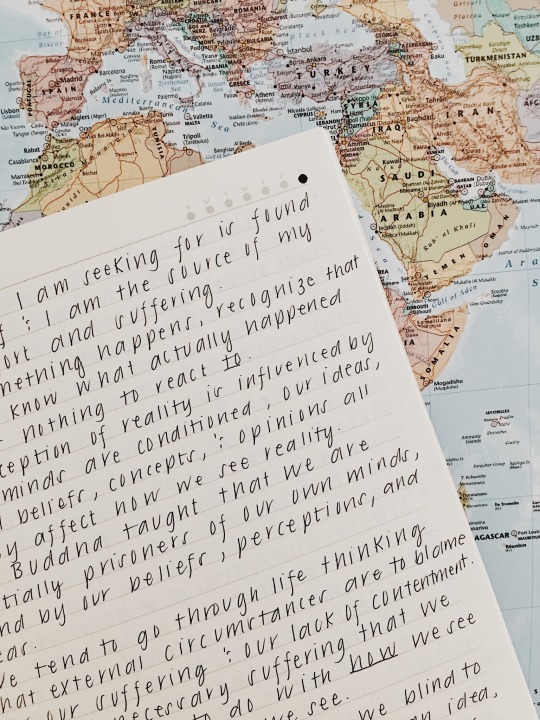 FRANCE
ROMANIA
Bucharest
Black Sea
BULGARIA
Barcelona
Madrid
SPAIN
Lisbon
Rome
Istanbul
Ankara
TURKEY
TURKMENISTAN
GREECE
Athens
Mediterranean
Sea
Catania
Valletta
MALTA
CYPRUS
SYRIA
IRAQ
IRAN
Rabat
Casablanca
MOROCCO
Tripoli
Kuwait
BAHRAIN
QATAR
U.A.E.
Riyadh
SAUDI
ARABIA
Rub' al Khali
OMAN
YEMEN
Gulf of Aden
Socotra
DJIBOUTI
Somaliland
SOMALIA
Mogadishu
(Muqdisho)
SEYCHELLES
Port Louis
Réunion
I am seeking for is found
f & I am the source of my
ort and suffering.
mething happens, recognize that
know what actually happened
nothing to react to.
ception of reality is influenced by
minds are conditioned, our ideas,
beliefs, concepts & opinions all
y affect how we see reality.
Buddha taught that we are
tially prisoners of our own minds,
nd by our beliefs, perceptions, and
eas.
e tend to go through life thinking
hat external circumstances are to blame
our suffering & our lack of contentment.
necessary suffering that we
to do with how we see
we see.
we blind to
an idea,